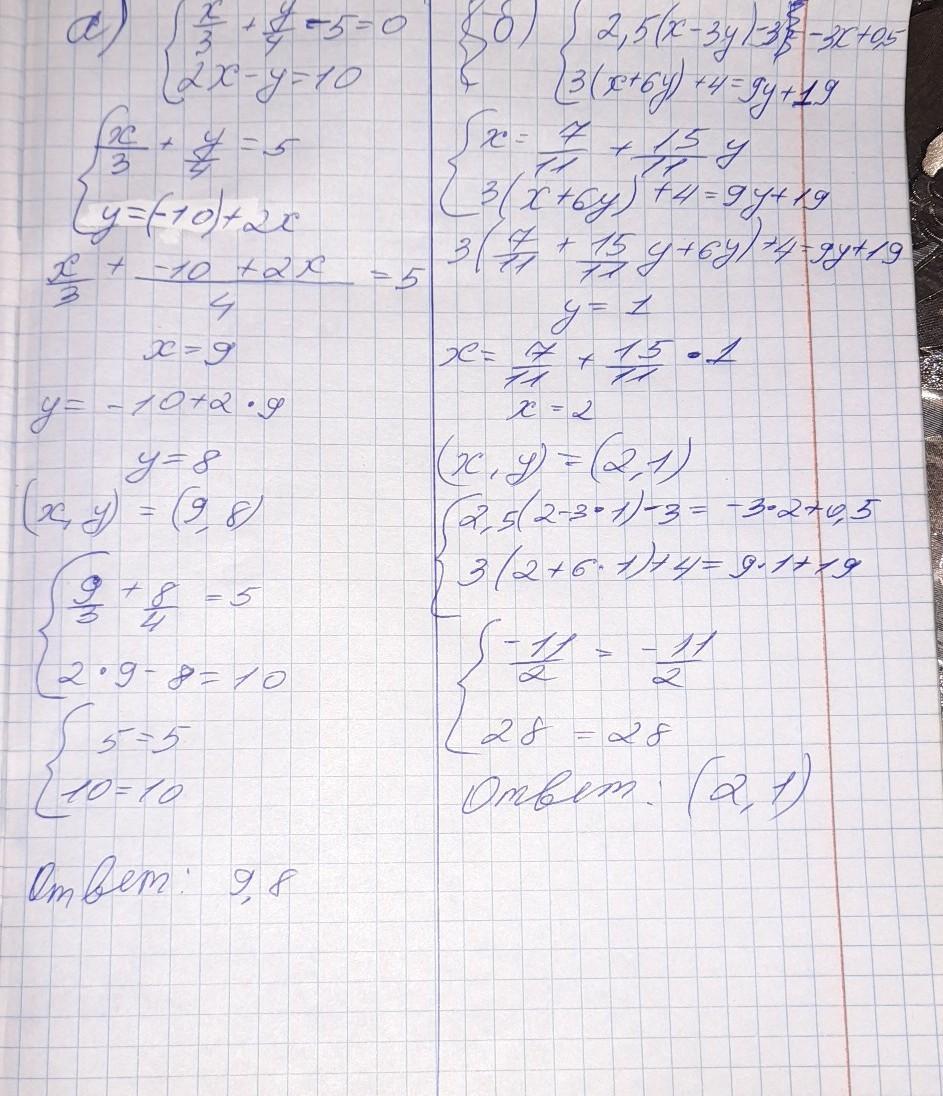 а) { x/3 + y/4 - 5 = 0
2x - y = 10
{ x/3 + y/4 = 5
y = (-10) + 2x
x/3 + (-10 + 2x)/4 = 5
x = 9
y = -10 + 2 • 9
y = 8
(x, y) = (9, 8)
{ 9/3 + 8/4 = 5
2 • 9 - 8 = 10
{ 5 = 5
10 = 10
Ответ: 9, 8
б) { 2,5(x - 3y) - 3 = -3x + 0,5
3(x + 6y) + 4 = 9y + 19
{ x = 7/11 + 15/11 y
3(x + 6y) + 4 = 9y + 19
3(7/11 + 15/11 y + 6y) + 4 = 9y + 19
y = 1
x = 7/11 + 15/11 • 1
x = 2
(x, y) = (2, 1)
{ 2,5(2 - 3 • 1) - 3 = -3 • 2 + 0,5
3(2 + 6 • 1) + 4 = 9 • 1 + 19
{ -11/2 = -11/2
28 = 28
Ответ: (2, 1)